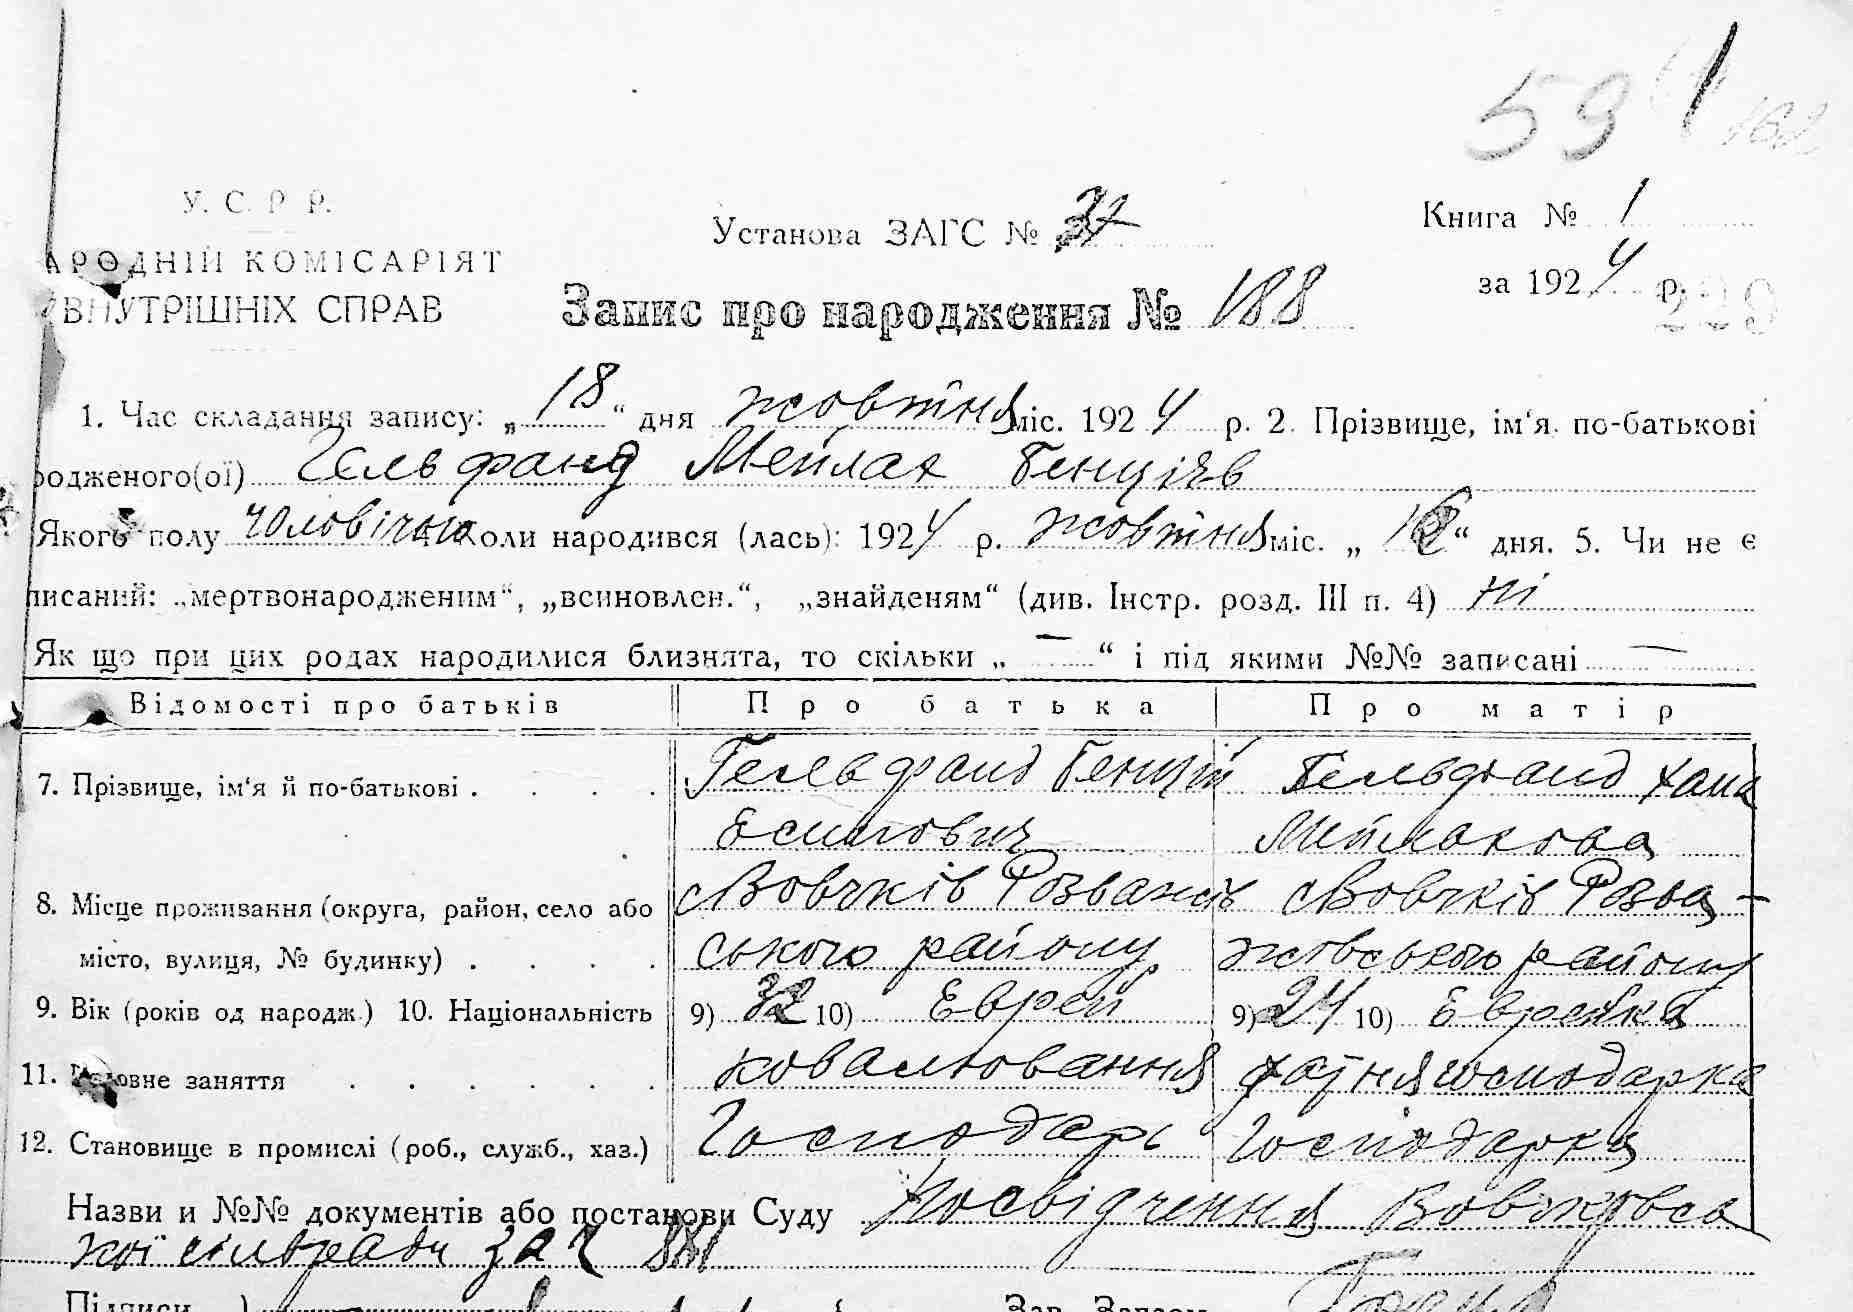 59
У. С. Р Р.
АРОДНІЙ КОМІСАРІЯТ
ВНУТРІШНІХ СПРАВ
Установа ЗАГС №
Книга № 1
за 1924 р.
229
Запис про народження № 188
1. Час складання запису: „18“ дня жовтня міс. 1924 р. 2. Прізвище, ім‘я. по-батькові
родженого(ої) Гельфанд Мейлах Бенціїв
Якого полу чоловічого коли народився (лась): 1924 р. жовтня міс. „ “ дня. 5. Чи не є
писаний: „мертвонародженим“, „всиновлен.“, „знайденям“ (див. Інстр. розд. III п. 4) ні
Як що при цих родах народилися близнята, то скільки „ — “ і під якими №№ записані —
Відомості про батьків Про батька Про матір
7. Прізвище, ім‘я й по-батькові . . . . Гельфанд Бенцій Гельфанд Хана
Есипович Мейлахова
8. Місце проживання (округа, район, село або Вовчків Розважів Вовчків Розва-
місто, вулиця, № будинку) . . . . ського району жовського району
9. Вік (років од народж.) 10. Національність 9) 32 10) Еврей 9) 24 10) Еврейка
11. овне заняття . . . . . . ковалювання хатня господарка
12. Становище в промислі (роб., служб., хаз.) Господарь Господарка
Назви и №№ документів або постанови Суду Посвідчення Вовчковсь
кої сільради за №
Підписи Зав. Загсом